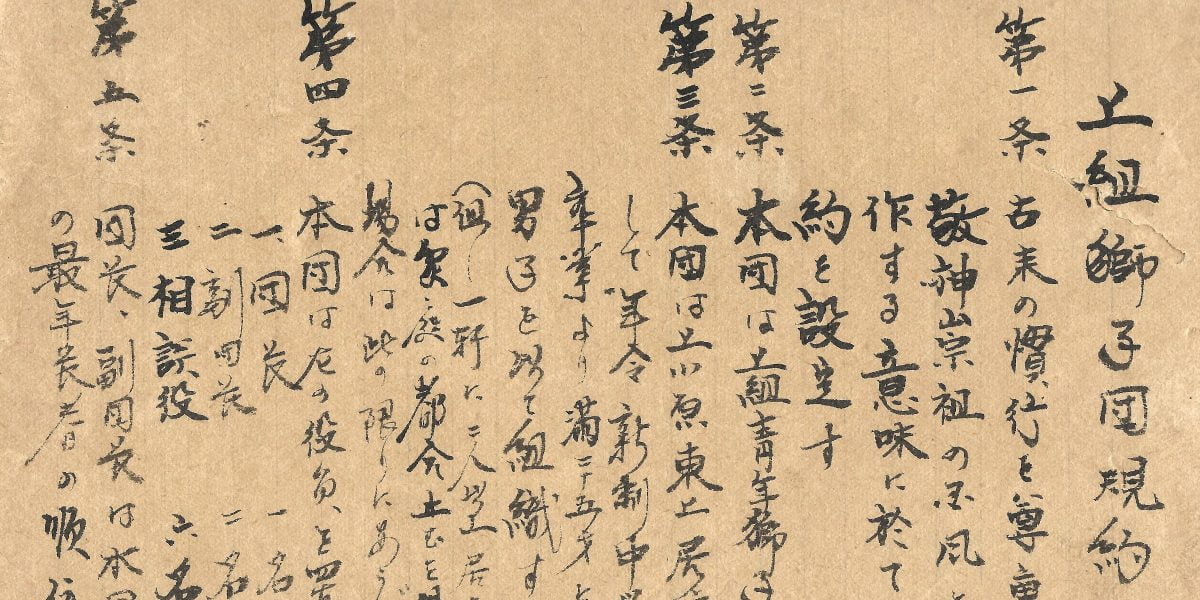 上組獅子団規約
第一条 古来の慣行を尊重
敬神崇祖の国風
作する意味に於て
約を設定す
第二条 本団は上組青年獅子
第三条 本団は上小原東上居
して年令新制中
卒業より満二十五才
男子を以て組織す
(但し一軒に二人以上居
は家庭の都合上
場合は此の限りにあら
第四条 本団は左の役員を置
一、団長 一名
二 副団長 二名
三 相談役 六名
第五条 団長、副団長は本団
の最年長者の順